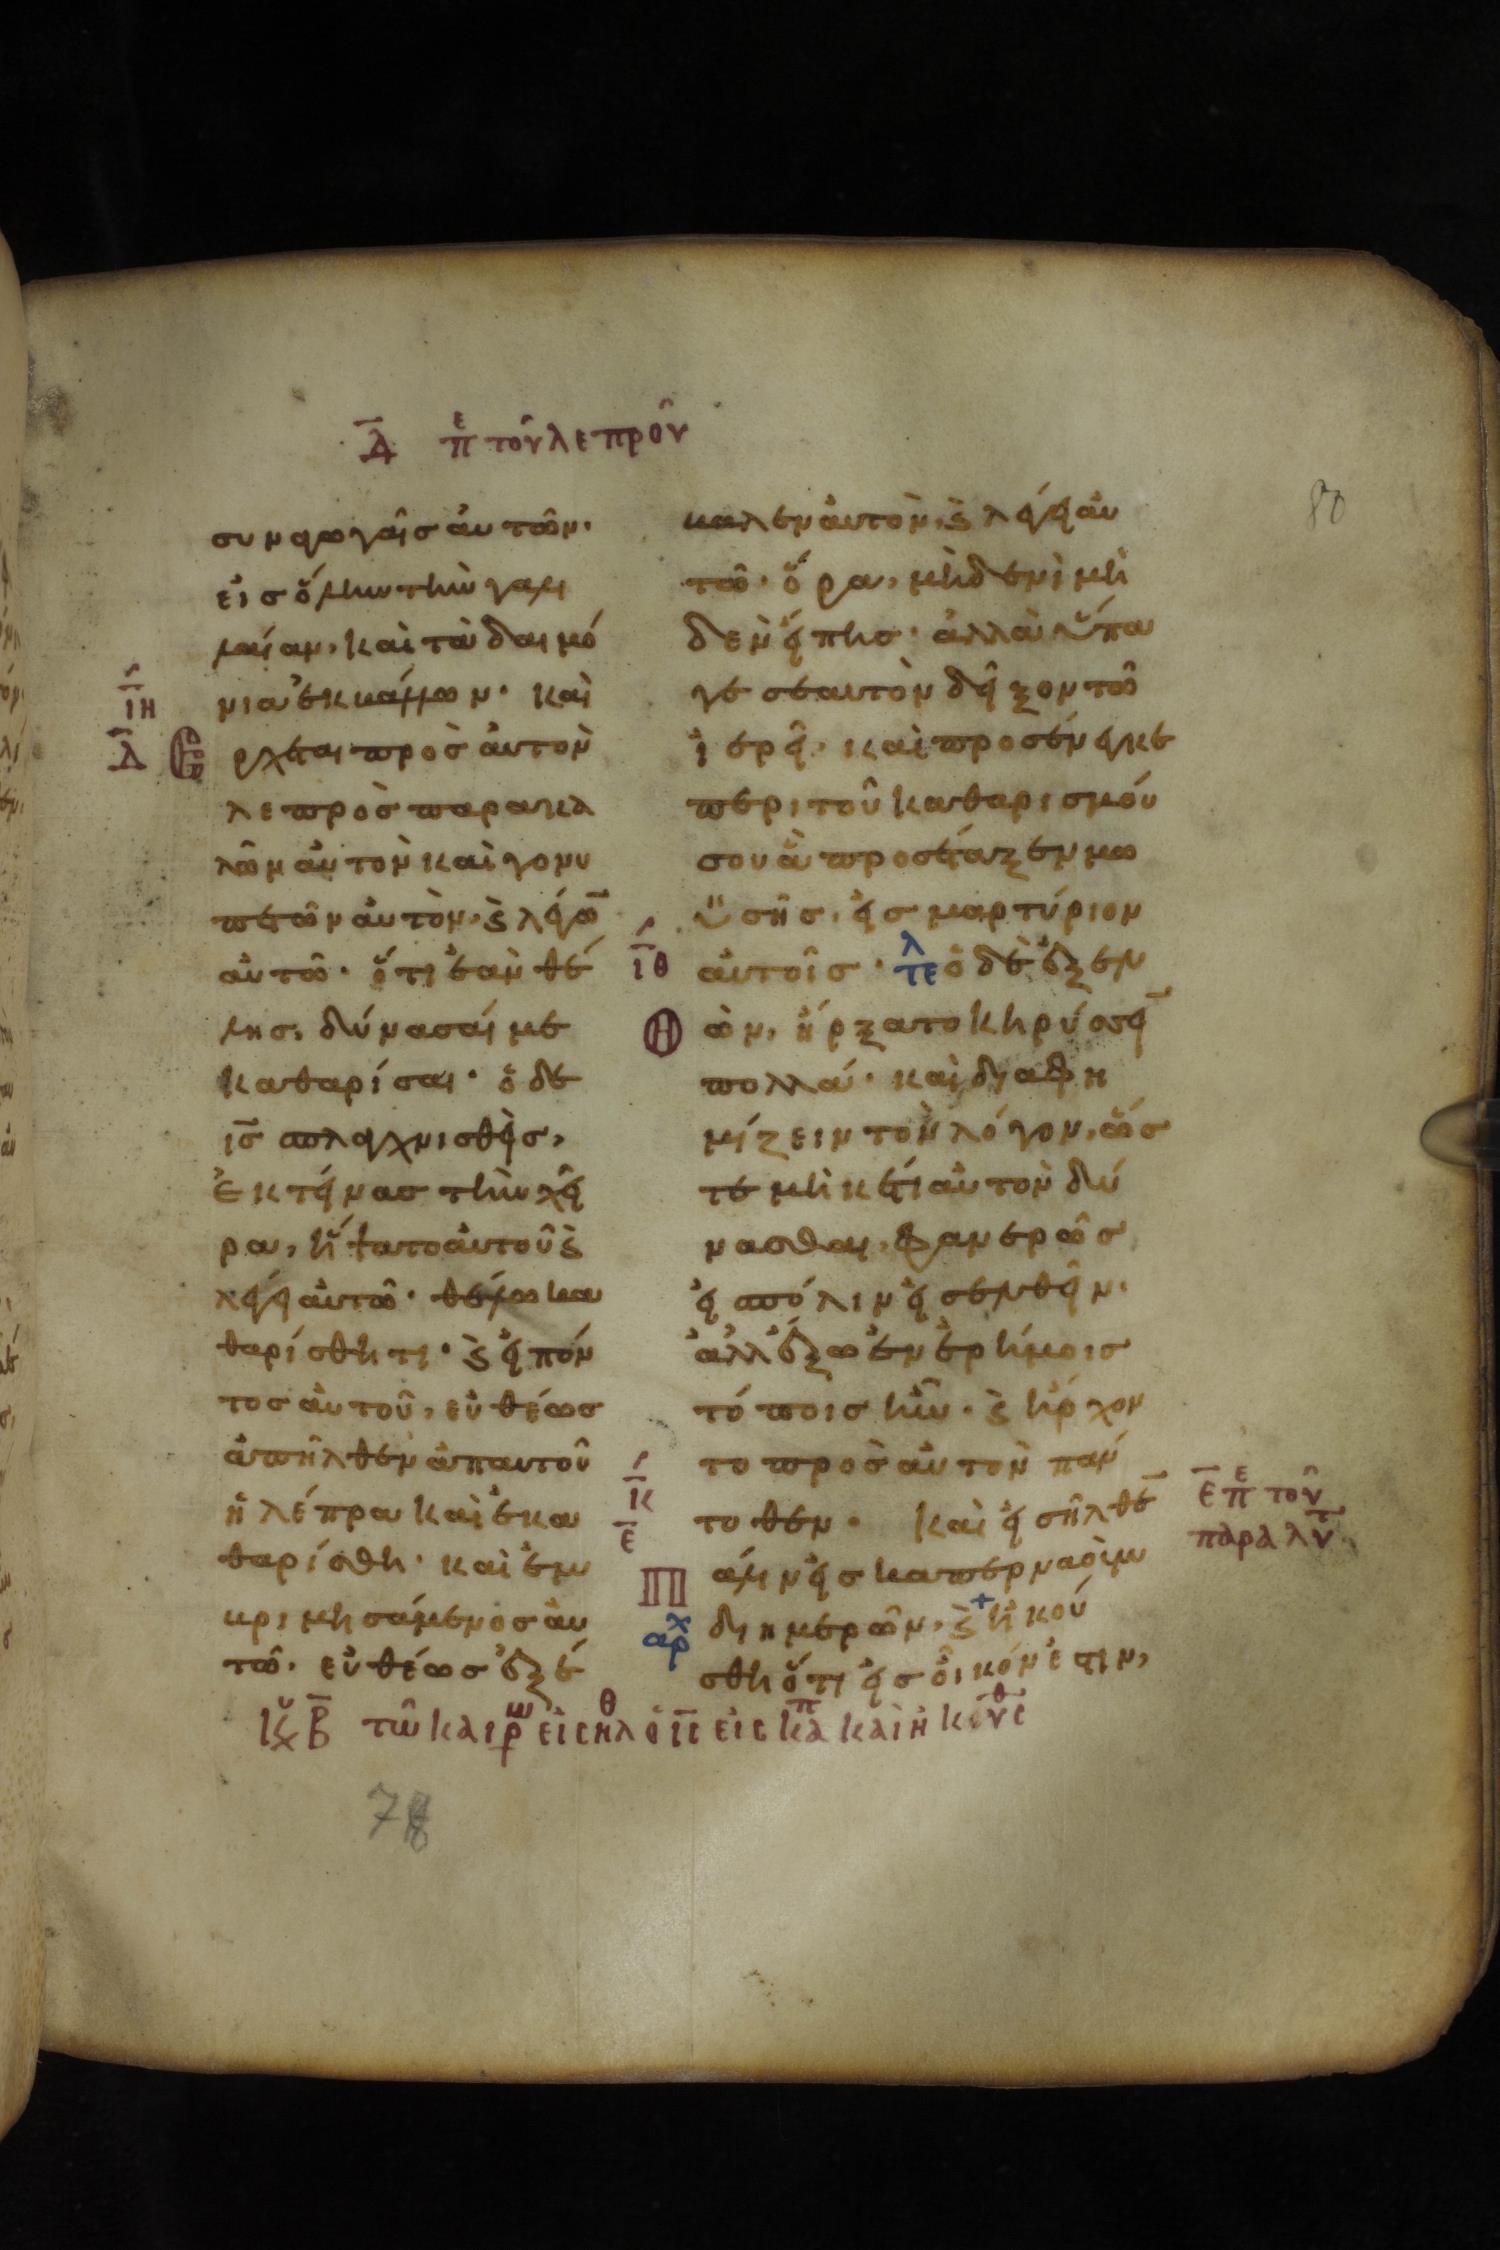 Δ επ τοῦ λεπροῦ
80
συναγωγαῖσ ἀυτῶν·
εἰσ ὅλην τὴν γαλι
λαίαν, καὶ τὰ δαιμό
νια ἐκκάλλων· καὶ
ιη
Δ
Ερχεται προσ ἀυτὸν
λεπρὸσ παρακα
λῶν ἀυτὸν καὶ γονυ
πετῶν ἀυτὸν, ϗ λέγω
ἀυτῶ· ὅτι ἐὰν θέ
λησ, δύνασαί με
καθαρίσαι· ὁ δὲ
ισ σπλαγχνισθεὶσ,
ἐκτείνασ τὴν χεῖ
ρα, ἥψατο ἀυτοῦ ϗ
λέγει ἀυτῶ· θέλω κα
θαρίσθητι· ϗ εἰπόν
τοσ ἀυτοῦ, εὐθέωσ
ἀπῆλθεν ἀπαυτοῦ
ἡ λέπρα καὶ ἐκα
θαρίσθη· καὶ ἐμ
βριμησάμενοσ ἀυ
τῶ· εὐθέωσ ἐξέ
καλεν ἀυτὸν, ϗ λέγει ἀυ
τῶ· ὅρα, μηδενὶ μη
δὲν εἴπησ· ἀλλὰ ὕπα
γε σεαυτὸν δεῖξον τῶ
ἱερεῖ, καὶ προσένεγκε
περι τοῦ καθαρισμόυ
σου ἃ προσέταξεν μω
ϋσῆσ, εἰσ μαρτύριον
ιθ
ἀυτοῖσ· τελ ὁ δὲ ἐξελ
Θὼν, ἤρξατο κηρύσσει
πολλά· καὶ διαφη
μίζειν τὸν λόγον, ὥσ
τε μηκέτι ἀυτὸν δύ
νασθαι, φανερῶσ
εἰσ πόλιν εἰσελθεῖν·
ἀλλ' ἔξω ἐν ἐρήμοισ
τόποισ ἦν· ϗ ἤρχον
το πρὸσ ἀυτὸν πάν
κ
ε
τοθεν· καὶ εἰσῆλθε
Ε επ τοῦ
παραλυτ
Πάλιν εἰσ καπερναοὺμ
αρχ
δι ἡμερῶν, ϗ + ἠκού
σθη ὅτι εἰσ οἶκόν ἐστιν,
Κυ Β τῶ καιρω εἰσηλθ ὁ ισ εἰσ καπ καὶ ἠκουσθ
78